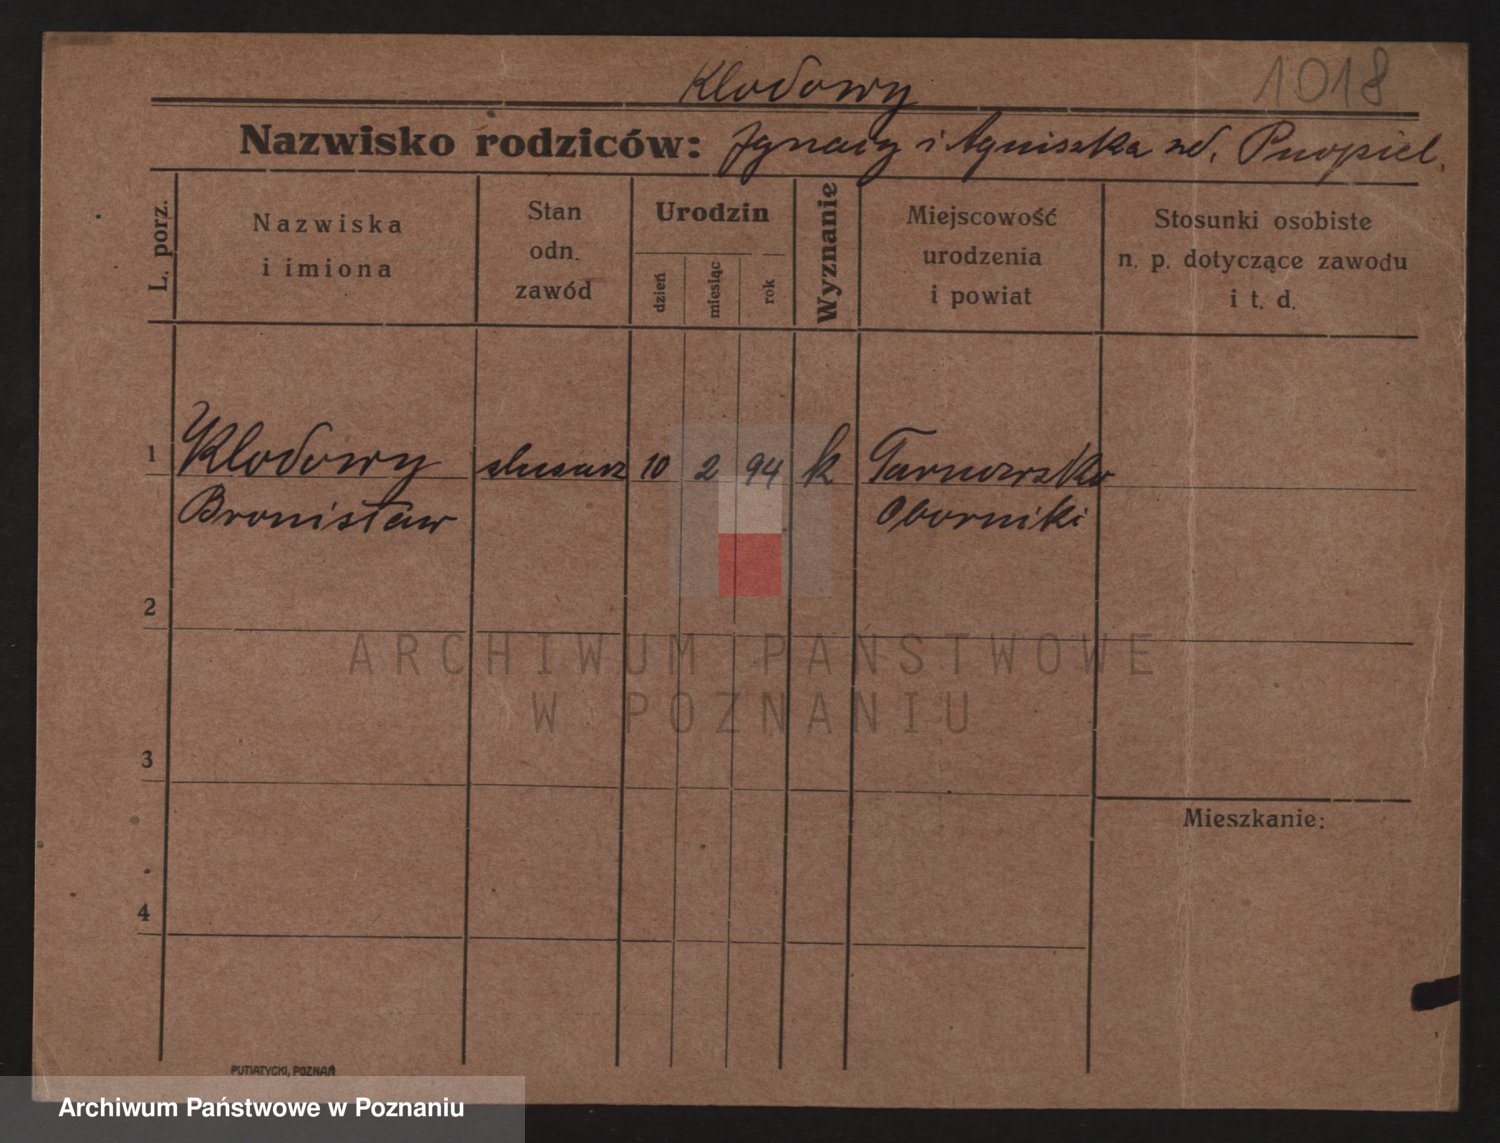 Kłodowy
1018
Nazwisko rodziców: Ignacy i Agniszka zd.
L. porz.
Nazwiska
i imiona
Stan
odn.
zawód
Urodzin
dzień
miesiąc
rok
Wyznanie
Miejscowość
urodzenia
i powiat
Stosunki osobiste
n. p. dotyczące zawodu
i t. d.
1 Kłodowy ślusarz 10 2 94 k Tarnowsko
Bronisław Oborniki
2
ARCHIWUM PAŃSTWOWE
W POZNANIU
3
Mieszkanie:
4
PUTIATYCKI, POZNAŃ
Archiwum Państwowe w Poznaniu